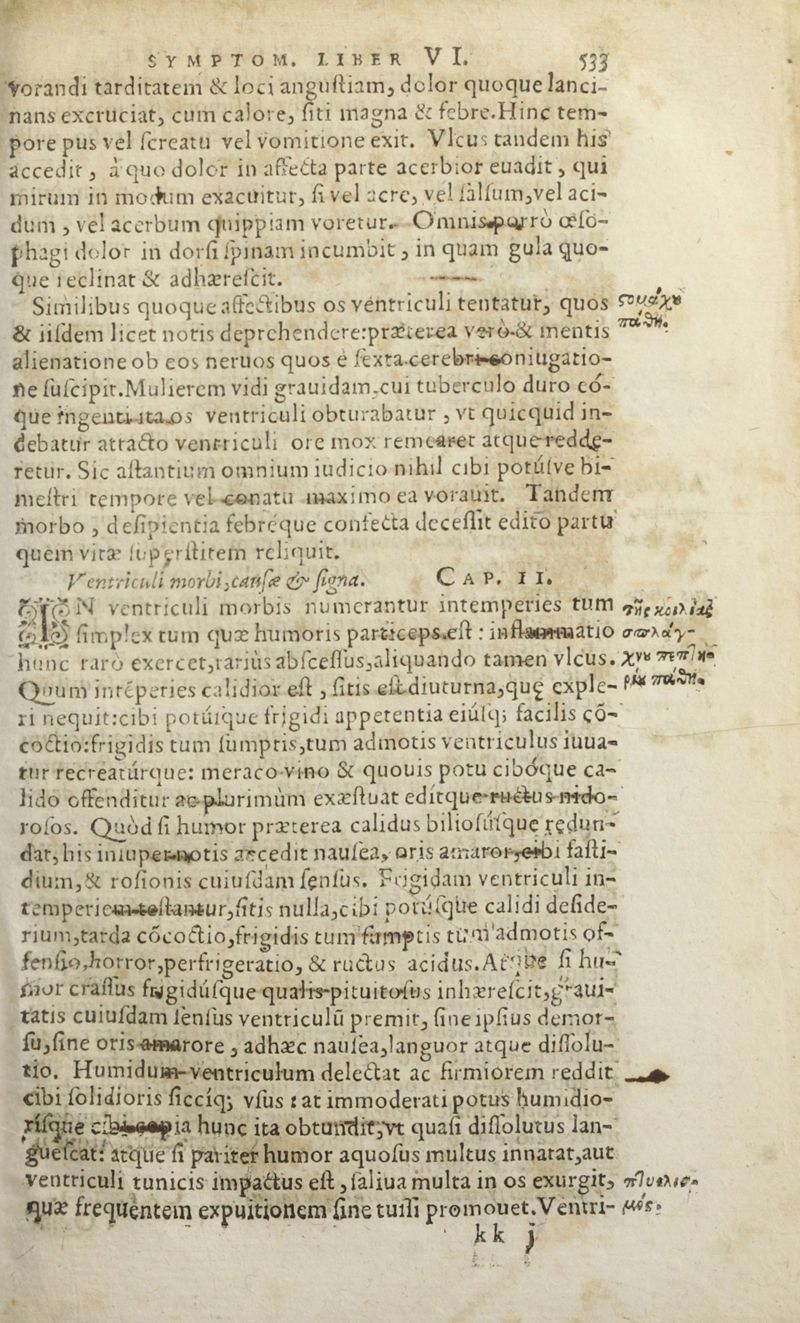 SYMPTOM. LIBER VI. 533
vorandi tarditatem & loci anguſtiam, dolor quoque lanci-
nans excruciat, cum calore, ſiti magna & febre. Hinc tem-
pore pus vel ſcreatu vel vomitione exit. Vlcus tandem his
accedit, à quo dolor in affecta parte acerbior euadit, qui
mirum in modum exacuitur, ſi vel acre, vel ſalſum, vel aci-
dum, vel acerbum quippiam voretur. Omnis porrò œſo-
phagi dolor in dorſi ſpinam incumbit, in quam gula quo-
que reclinat & adhæreſcit.
Similibus quoque affectibus os ventriculi tentatur, quos
& iiſdem licet notis deprehendere: præterea verò & mentis
alienatione ob eos neruos quos è ſexta cerebri coniugatio-
ne ſuſcipit. Mulierem vidi grauidam, cui tuberculo duro eó-
que ingenti ita os ventriculi obturabatur, vt quicquid in-
debatur attracto ventriculi ore mox remearet atque redde-
retur. Sic aſtantium omnium iudicio nihil cibi potúſve bi-
meſtri tempore vel conatu maximo ea vorauit. Tandem
morbo, deſipientia febréque confecta deceſſit edito partu
quem vitæ ſuperſtitem reliquit.
Ventriculi morbi, cauſæ & ſigna. CAP. III.
IN ventriculi morbis numerantur intemperies tum τῆς κοιλίας
ſimplex tum quæ humoris particeps eſt: inflammatio
hunc rarò exercet, rariùs abſceſſus, aliquando tamen vlcus.
Quum intẽperies calidior eſt, ſitis eſt diuturna, quę exple-
ri nequit: cibi potúique frigidi appetentia eiúſq; facilis cõ-
coctio: frigidis tum ſumptis, tum admotis ventriculus iuua-
tur recreatúrque: meraco vino & quouis potu cibóque ca-
lido offenditur ac plurimùm exæſtuat editque ructus nido-
roſos. Quòd ſi humor præterea calidus bilioſúſque redun-
dat, his inſuper notis accedit nauſea, oris amaror, cibi faſti-
dium, & roſionis cuiuſdam ſenſus. Frigidam ventriculi in-
temperiem teſtantur, ſitis nulla, cibi potúſque calidi deſide-
rium, tarda cõcoctio, frigidis tum ſumptis tum admotis of-
fenſio, horror, perfrigeratio, & ructus acidus. Atque ſi hu-
mor craſſus frigidúſque qualis pituitoſus inhæreſcit, graui-
tatis cuiuſdam ſenſus ventriculũ premit, ſine ipſius demor-
ſu, ſine oris amarore, adhæc nauſea, languor atque diſſolu-
tio. Humidum ventriculum delectat ac firmiorem reddit
cibi ſolidioris ſiccíq; vſus: at immoderati potus humidio-
riſque cibi copia hunc ita obtundit, vt quaſi diſſolutus lan-
gueſcat: atque ſi pariter humor aquoſus multus innatat, aut
ventriculi tunicis impactus eſt, ſaliua multa in os exurgit,
quæ frequentem expuitionem ſine tuſſi promouet. Ventri-
kk j